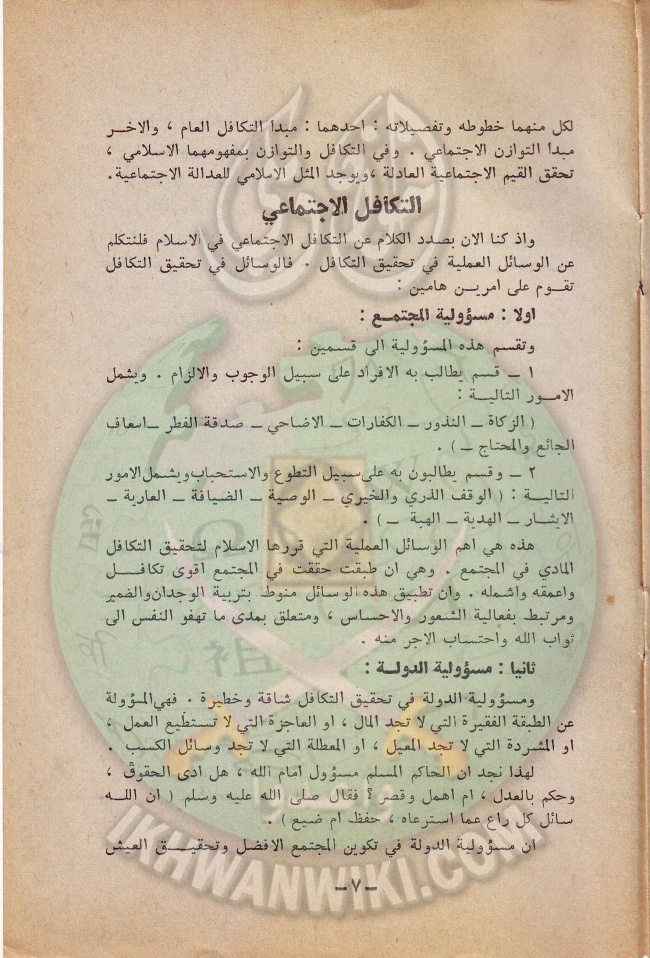 لكل منهما خطوطه وتفصيلاته : احدهما : مبدأ التكافل العام ، والاخــر
مبدأ التوازن الاجتماعي . وفي التكافل والتوازن بمفهومهما الاسلامي ،
تحقق القيم الاجتماعية العادلة ،ويوجد المثل الاسلامي للعدالة الاجتماعية.
التكافل الاجتماعي
واذ كنا الان بصدد الكلام عن التكافل الاجتماعي في الاسلام فلنتكلم
عن الوسائل العملية في تحقيق التكافل . فالوسائل في تحقيق التكافل
تقوم على امريــن هامين :
اولا : مسؤولية المجتمــع :
وتقسم هذه المسؤولية الى قسمين :
١ ــ قسم يطالب به الافراد على سبيل الوجوب والالزام . ويشمل
الامور التالية :
( الزكاة ــ النذور ــ الكفارات ــ الاضاحي ــ صدقة الفطر ــ اسعاف
الجائع والمحتاج ــ ) .
٢ ــ وقسم يطالبون به على سبيل التطوع والاستحباب ويشمل الامور
التالية : ( الوقف الذري والخيري ــ الوصية ــ الضيافة ــ العارية ــ
الايثــار ــ الهدية ــ الهبة ــ ) .
هذه هي اهم الوسائل العملية التي قررها الاسلام لتحقيق التكافل
المادي في المجتمع . وهي ان طبقت حققت في المجتمع اقوى تكافــل
واعمقه واشمله . وان تطبيق هذه الوسائل منوط بتربية الوجدان والضمير
ومرتبط بفعالية الشعور والاحساس ، ومتعلق بمدى ما تهفو النفس الى
ثواب الله واحتساب الاجر منه .
ثانيا : مسؤولية الدولــة :
ومسؤولية الدولة في تحقيق التكافل شاقة وخطيرة . فهي المسؤولة
عن الطبقة الفقيرة التي لا تجد المال ، او العاجزة التي لا تستطيع العمل ،
او المشردة التي لا تجد المعيل ، او المعطلة التي لا تجد وسائل الكسب .
لهذا نجد ان الحاكم المسلم مسؤول امام الله ، هل ادى الحقوق ،
وحكم بالعدل ، ام اهمل وقصر ؟ فقال صلى الله عليه وسلم ( ان اللــه
سائل كل راع عما استرعاه ، حفظ ام ضيع ) .
ان مسؤولية الدولة في تكوين المجتمع الافضل وتحقيــق العيش
ــ ٧ ــ
IKHWANWIKI.COM